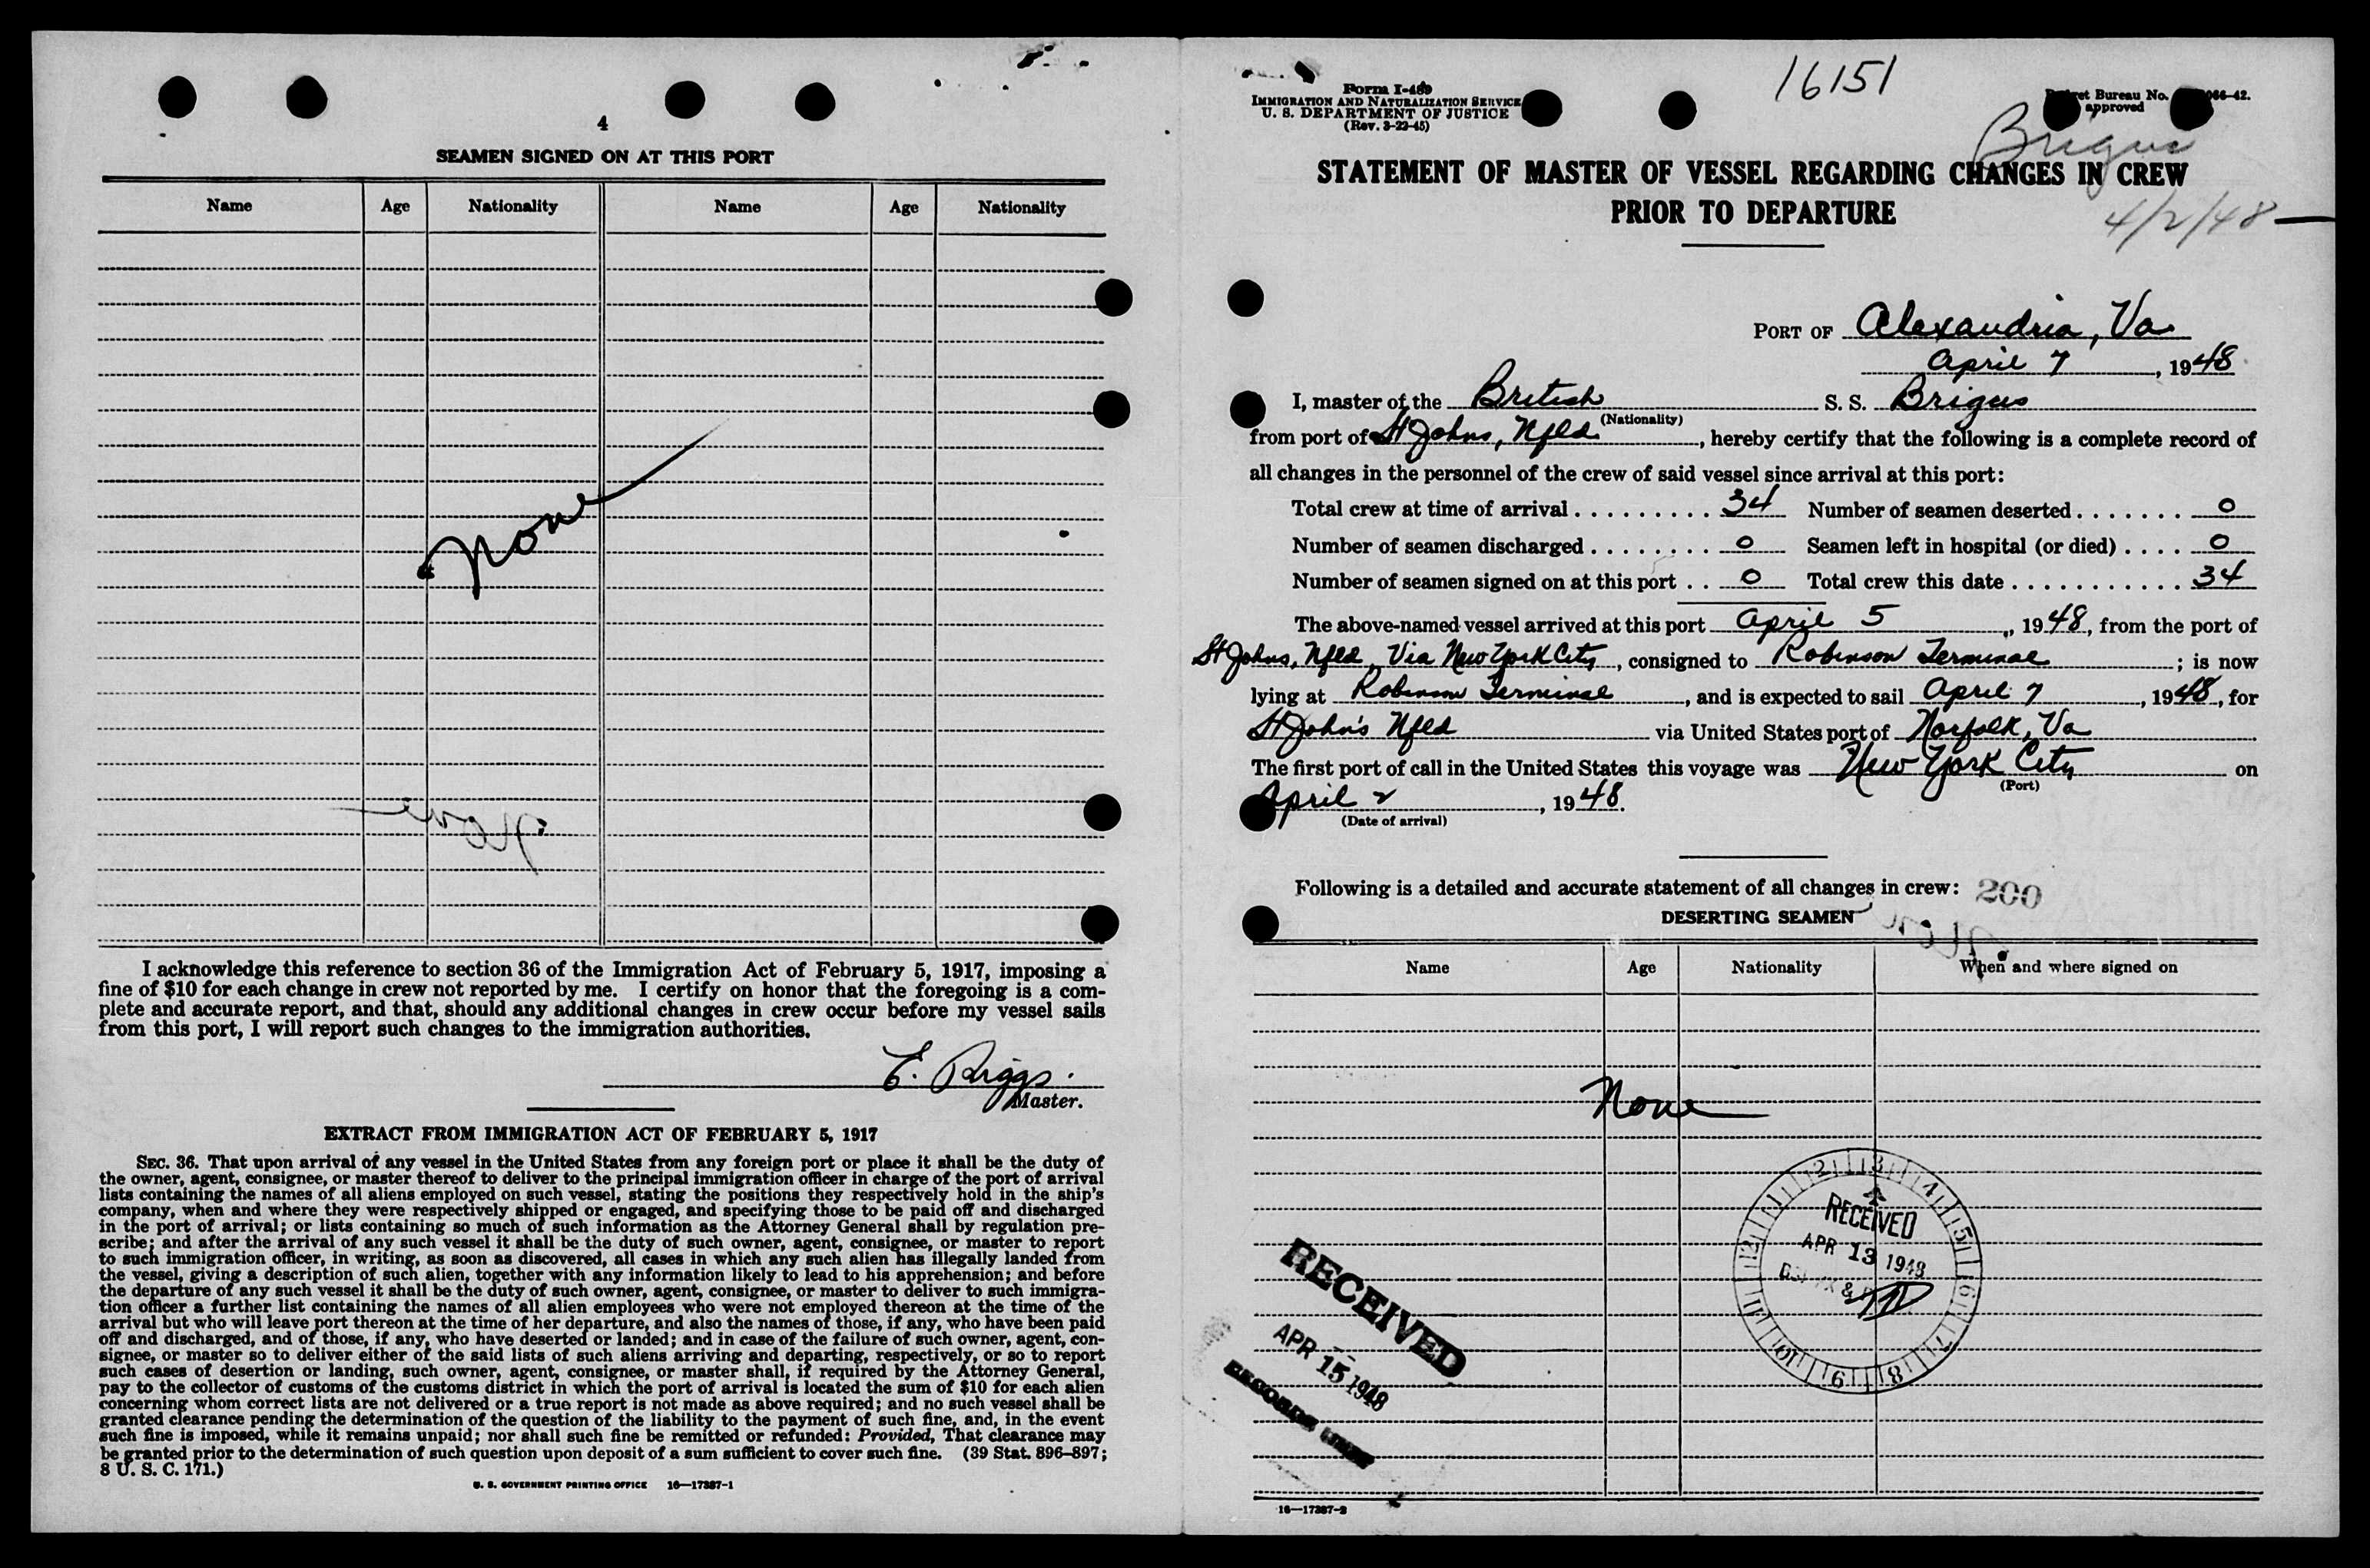 4
SEAMEN SIGNED ON AT THIS PORT
Name Age Nationality Name Age Nationality
None
I acknowledge this reference to section 36 of the Immigration Act of February 5, 1917, imposing a
fine of $10 for each change in crew not reported by me. I certify on honor that the foregoing is a com-
plete and accurate report, and that, should any additional changes in crew occur before my vessel sails
from this port, I will report such changes to the immigration authorities.
E. Riggs.
Master.
EXTRACT FROM IMMIGRATION ACT OF FEBRUARY 5, 1917
SEC. 36. That upon arrival of any vessel in the United States from any foreign port or place it shall be the duty of
the owner, agent, consignee, or master thereof to deliver to the principal immigration officer in charge of the port of arrival
lists containing the names of all aliens employed on such vessel, stating the positions they respectively hold in the ship's
company, when and where they were respectively shipped or engaged, and specifying those to be paid off and discharged
in the port of arrival; or lists containing so much of such information as the Attorney General shall by regulation pre-
scribe; and after the arrival of any such vessel it shall be the duty of such owner, agent, consignee, or master to report
to such immigration officer, in writing, as soon as discovered, all cases in which any such alien has illegally landed from
the vessel, giving a description of such alien, together with any information likely to lead to his apprehension; and before
the departure of any such vessel it shall be the duty of such owner, agent, consignee, or master to deliver to such immigra-
tion officer a further list containing the names of all alien employees who were not employed thereon at the time of the
arrival but who will leave port thereon at the time of her departure, and also the names of those, if any, who have been paid
off and discharged, and of those, if any, who have deserted or landed; and in case of the failure of such owner, agent, con-
signee, or master so to deliver either of the said lists of such aliens arriving and departing, respectively, or so to report
such cases of desertion or landing, such owner, agent, consignee, or master shall, if required by the Attorney General,
pay to the collector of customs of the customs district in which the port of arrival is located the sum of $10 for each alien
concerning whom correct lists are not delivered or a true report is not made as above required; and no such vessel shall be
granted clearance pending the determination of the question of the liability to the payment of such fine, and, in the event
such fine is imposed, while it remains unpaid; nor shall such fine be remitted or refunded: Provided, That clearance may
be granted prior to the determination of such question upon deposit of a sum sufficient to cover such fine. (39 Stat. 896-897;
8 U. S. C. 171.)
U. S. GOVERNMENT PRINTING OFFICE 16—17387-1
Form I-489
IMMIGRATION AND NATURALIZATION SERVICE
U. S. DEPARTMENT OF JUSTICE
(Rev. 3-22-45)
16151
Bureau No. 066-42.
approved
Brigus
4/2/48
STATEMENT OF MASTER OF VESSEL REGARDING CHANGES IN CREW
PRIOR TO DEPARTURE
PORT OF Alexandria, Va
April 7, 1948
I, master of the British S. S. Brigus
(Nationality)
from port of St Johns, Nfld, hereby certify that the following is a complete record of
all changes in the personnel of the crew of said vessel since arrival at this port:
Total crew at time of arrival 34 Number of seamen deserted 0
Number of seamen discharged 0 Seamen left in hospital (or died) 0
Number of seamen signed on at this port 0 Total crew this date 34
The above-named vessel arrived at this port April 5, 1948, from the port of
St Johns, Nfld, Via New York City, consigned to Robinson Terminal; is now
lying at Robinson Terminal, and is expected to sail April 7, 1948, for
St John's Nfld via United States port of Norfolk, Va
The first port of call in the United States this voyage was New York City on
(Port)
April 2, 1948.
(Date of arrival)
Following is a detailed and accurate statement of all changes in crew: 200
DESERTING SEAMEN
Name Age Nationality When and where signed on
None
RECEIVED
APR 13 1948
RECEIVED
APR 15 1948
RECORDS
16—17387-2